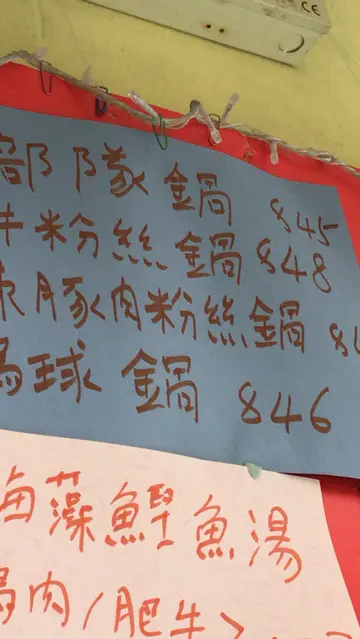 CE
部隊鍋 845
牛粉絲鍋 848
豚肉粉絲鍋 84
球鍋 846
海藻鰹魚湯
肉(肥牛